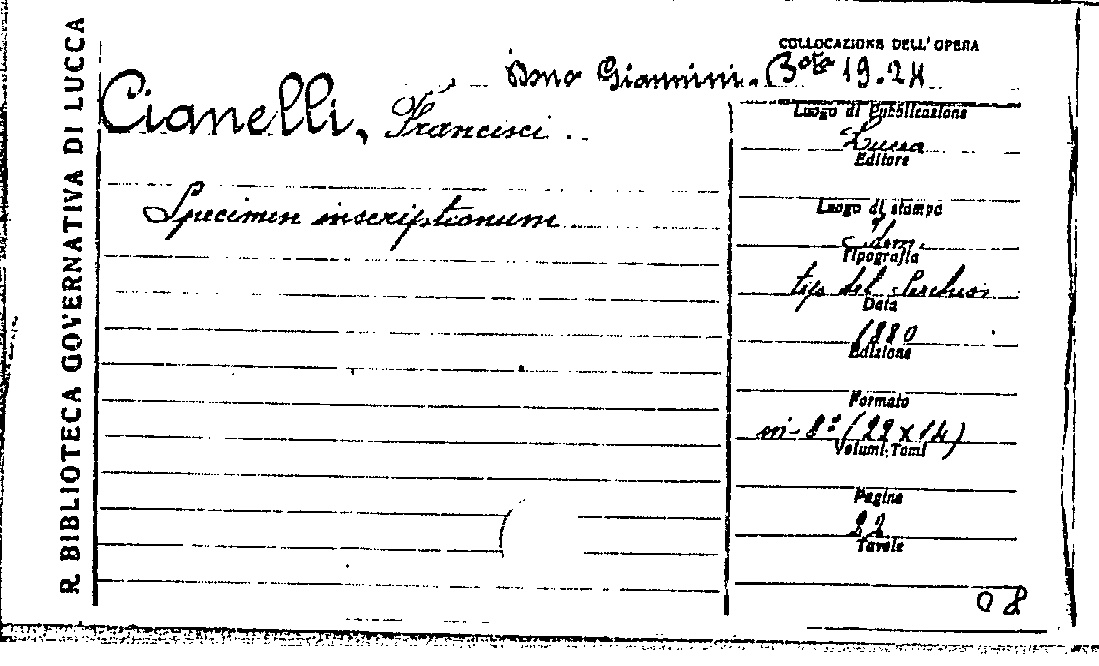 R BIBLIOTECA GOVERNATIVA DI LUCCA
COLLOCAZIONE DELL'OPERA
Dono Giannini. B.ta 19.24
Cianelli, Francisci
Specimen inscriptionum
Luogo di Pubblicazione
Lucca
Editore
Luogo di stampa
Idem.
Tipografia
tip del Serchio
Data
1880
Edizione
Formato
in-8º (22 x 14)
Volumi-Tomi
Pagine
22
Tavole
08